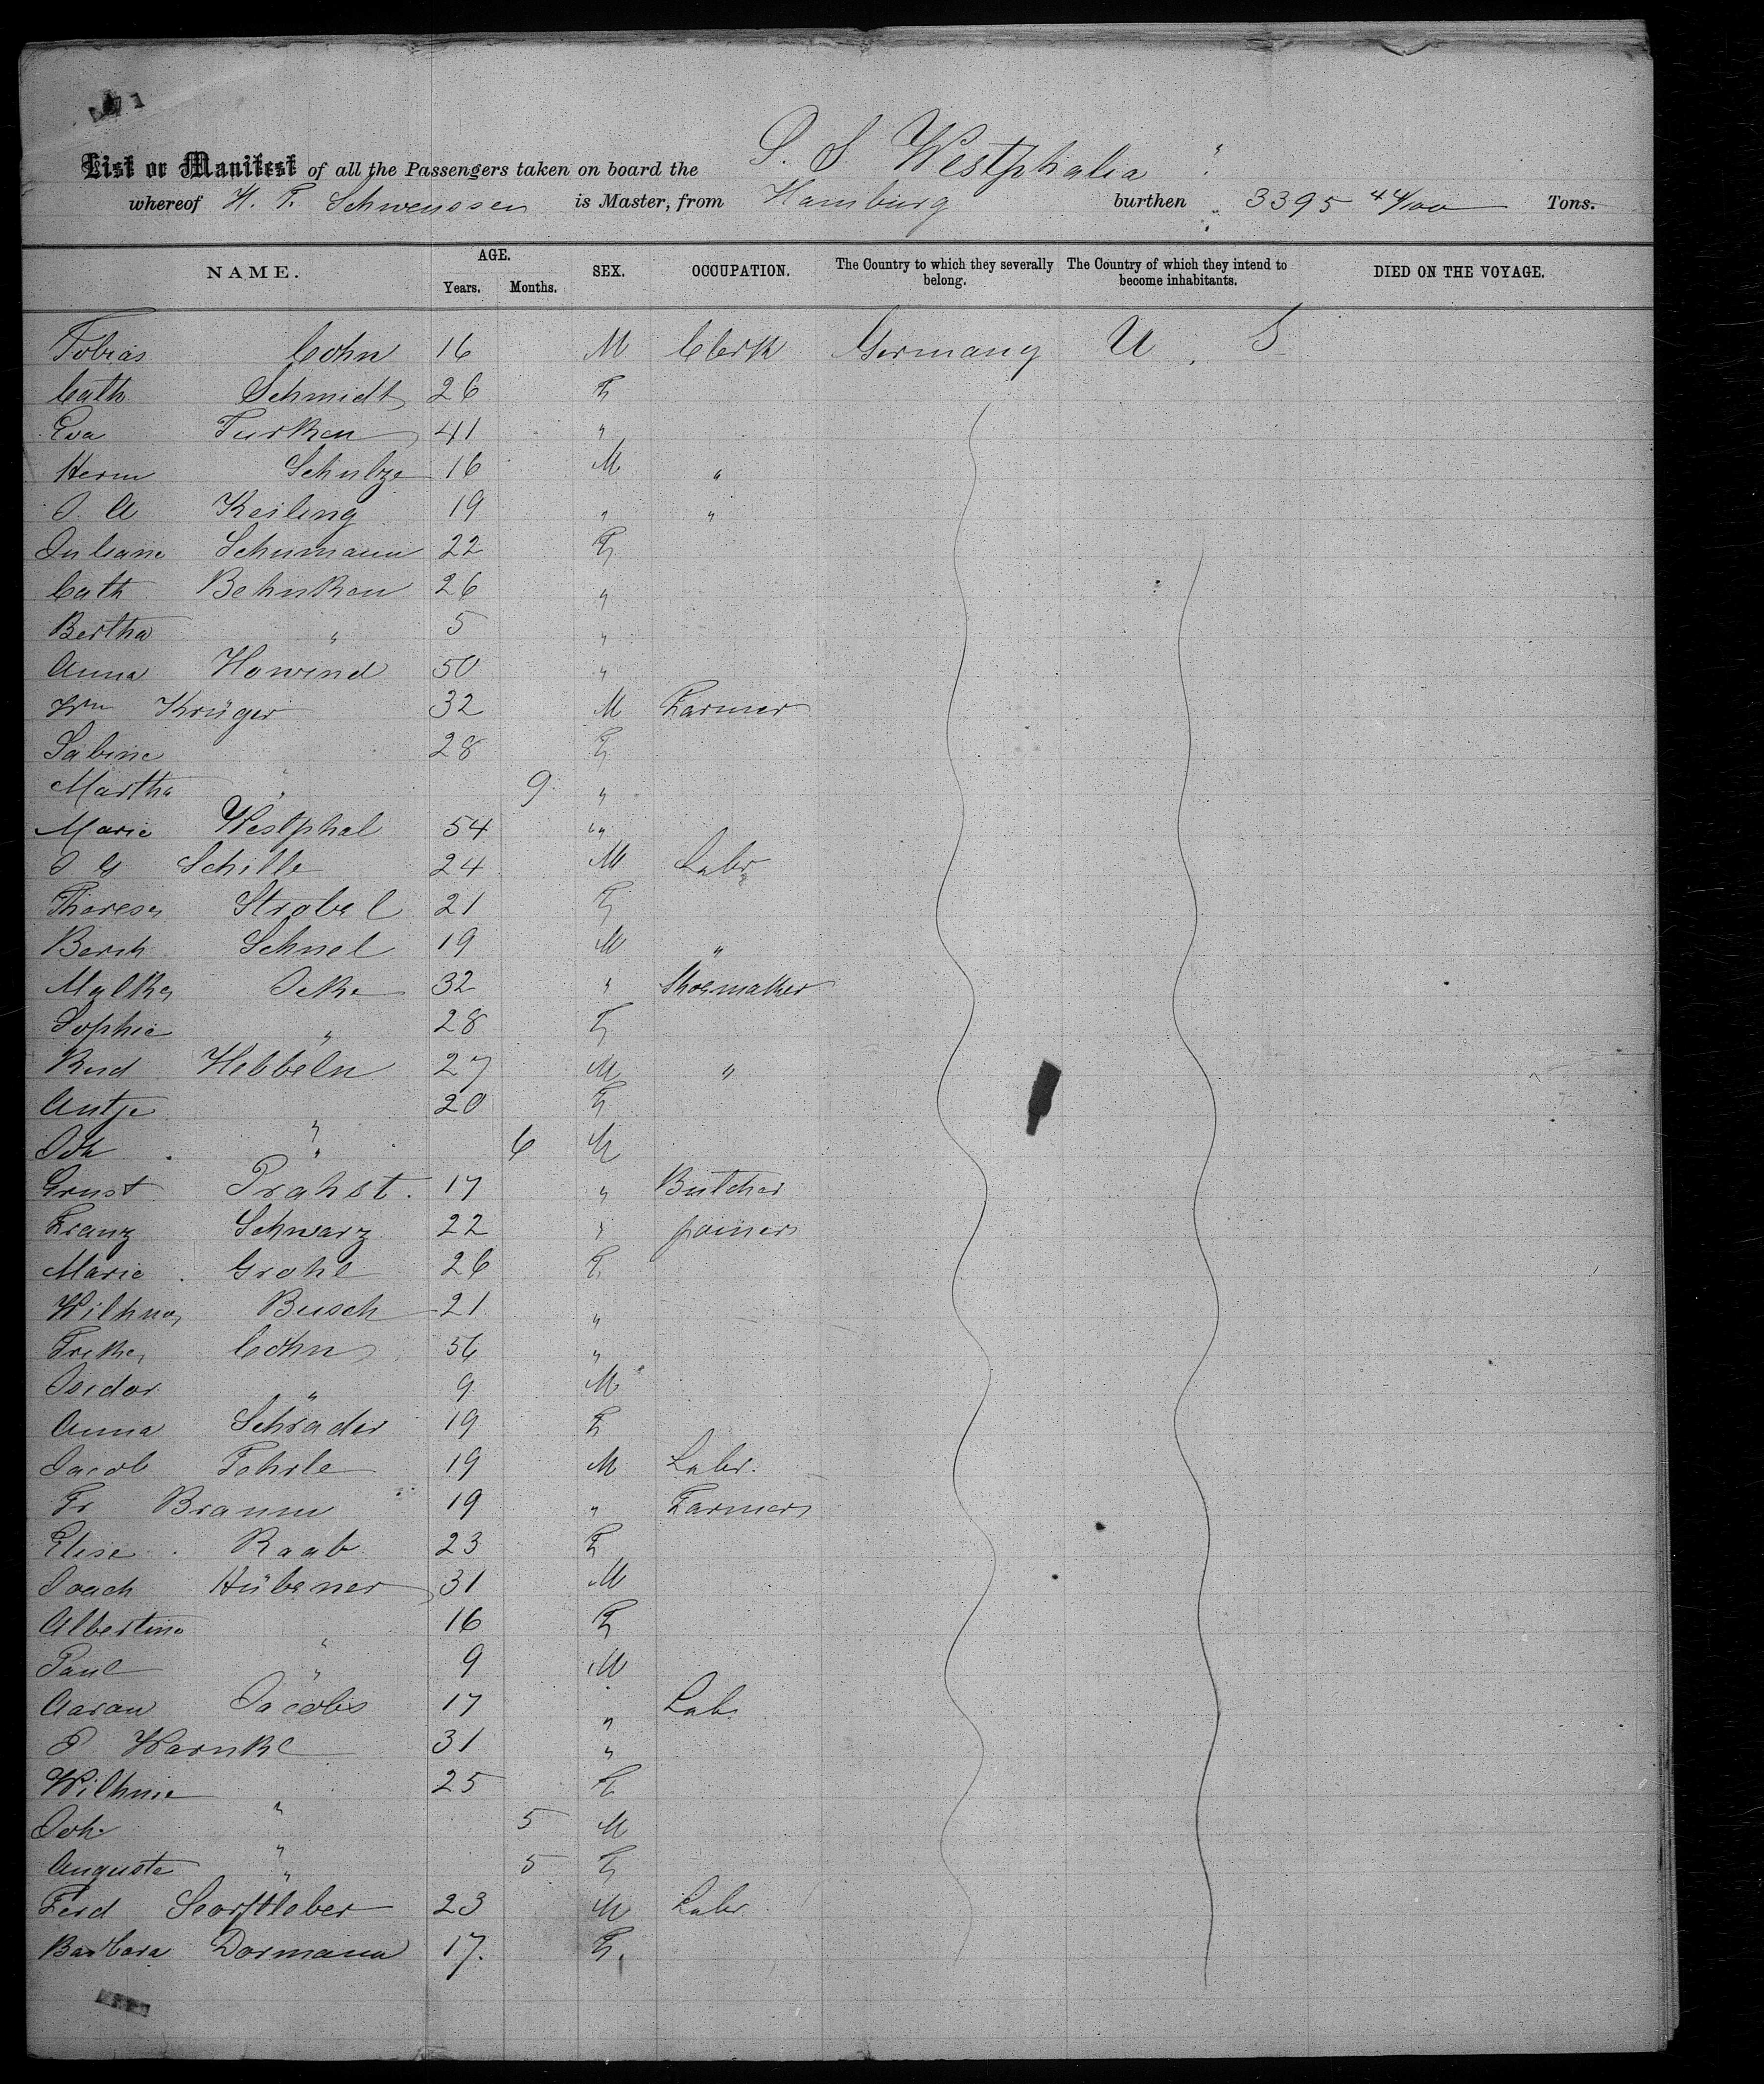 List or Manifest of all the Passengers taken on board the S. S. Westphalia
whereof H. F. Schwenssen is Master, from Hamburg burthen 3395 44/100 Tons.
NAME. AGE. Years. Months. SEX. OCCUPATION. The Country to which they severally belong. The Country of which they intend to become inhabitants. DIED ON THE VOYAGE.
Tobias Cohn 16 M Clerk Germany U. S
Cath Schmidt 26 F
Eva Turken 41 "
Herm Schulze 16 M "
J. A Keiling 19 " "
Juliane Schumann 22 F
Cath Behnken 26 "
Bertha " 5 "
Anna Howind 50 "
Wm Krüger 32 M Farmer
Sabine 28 F
Martha " 9 "
Marie Westphal 54 "
J G Schille 24 M Labr
Theresa Strobel 21 F
Berch Schnel 19 M "
Malke 32 " Shoemaker
Sophie " 28 F
Rud Hebbeln 27 M "
Antje " 20 F
Joh " 6 M
Ernst Prahst. 17 " Butcher
Franz Schwarz 22 " joiner
Marie Grohl 26 F
Wilhma Busch 21 "
Frike Cohn 56 "
Isidor " 9 M
Anna Schrader 19 F
Jacob Fehrle 19 M Labr.
Fr Braun 19 " Farmer
Elise Raab 23 F
Joach Hübener 31 M
Albertine " 16 F
Paul " 9 M
Aaron Jacobs 17 " Lab
P Warnke 31 "
Wilhme " 25 F
Joh " 5 M
Auguste " 5 F
Ferd 23 M Labr
Barbara Dormann 17. F.